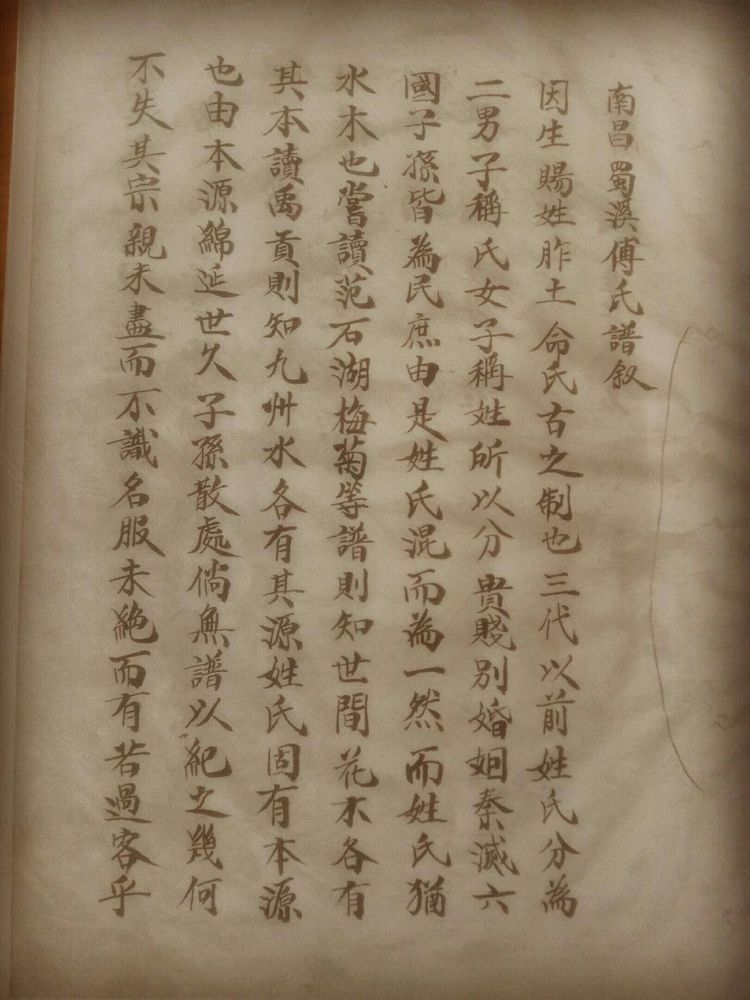 南昌蜀溪傅氏譜叙
因生賜姓胙土命氏古之制也三代以前姓氏分為
二男子稱氏女子稱姓所以分貴賤別婚姻秦滅六
國子孫皆為民庶由是姓氏混而為一然而姓氏猶
水木也嘗讀范石湖梅菊等譜則知世間花木各有
其本讀禹貢則知九州水各有其源姓氏固有本源
也由本源綿延世久子孫散處倘無譜以紀之幾何
不失其宗親未盡而不識名服未絶而有若過客乎